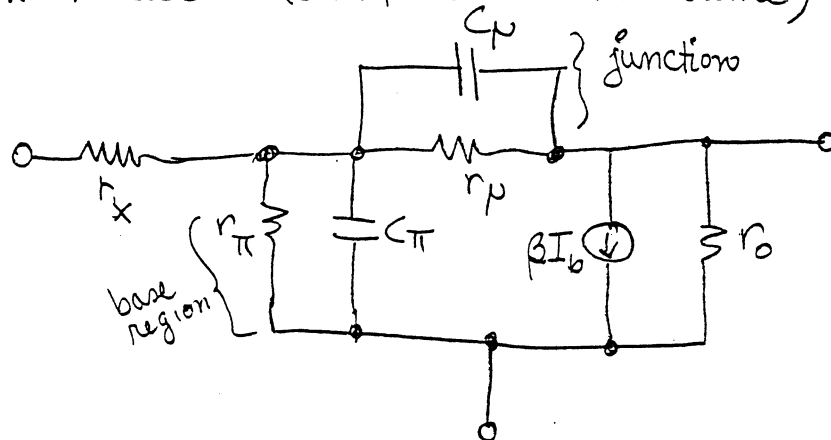 Cμ
junction
rx
rμ
rπ
Cπ
βIb
ro
base
region